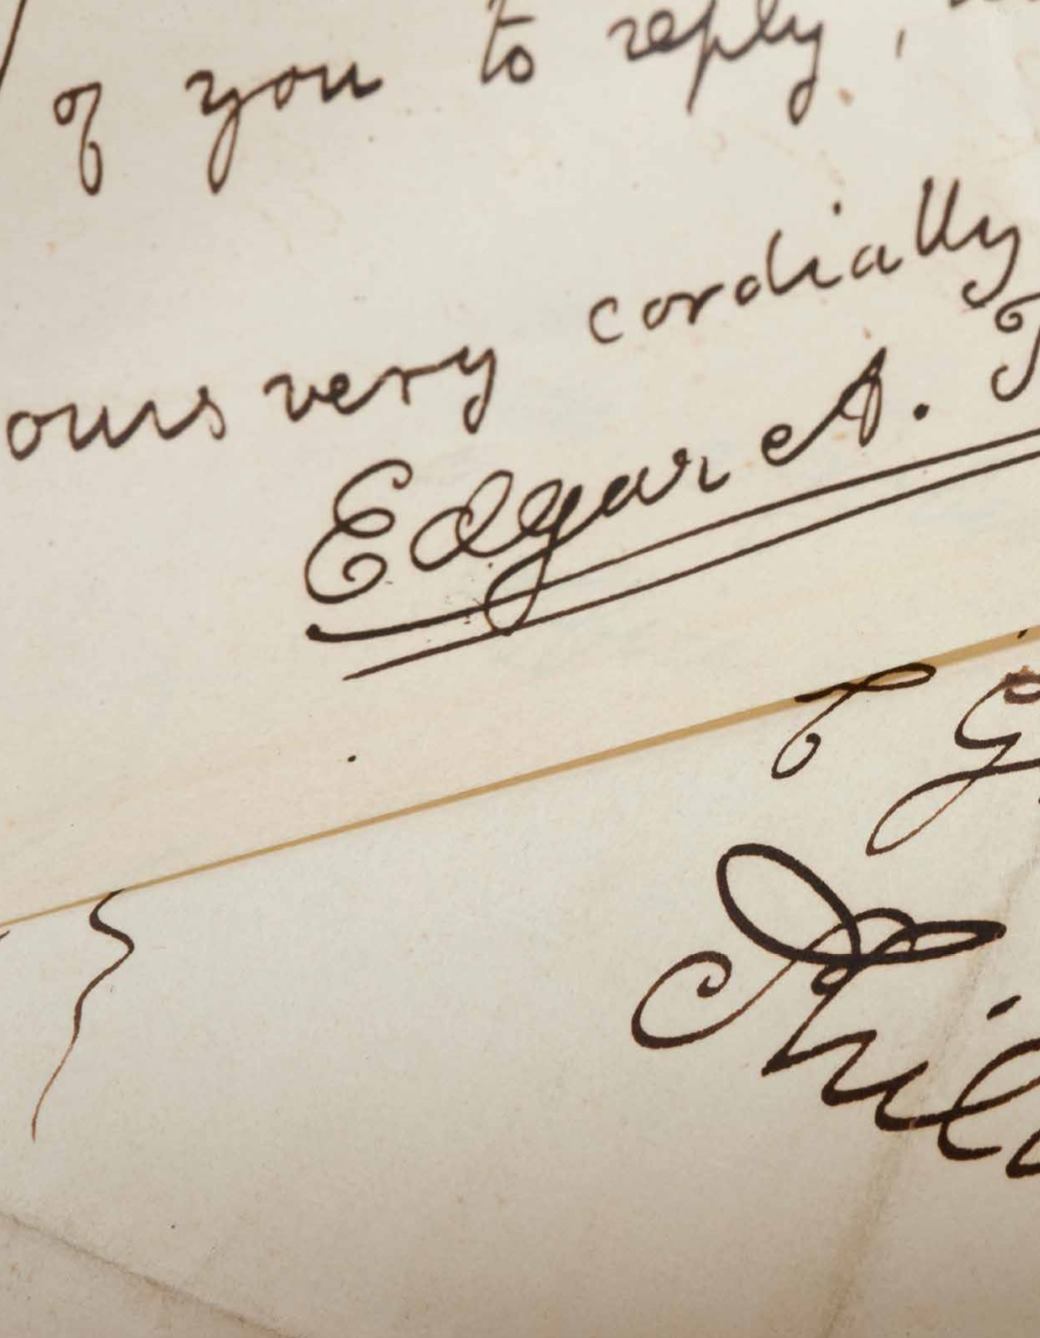 of you to reply,
ours very cordially
Edgar A. P
G
Phil